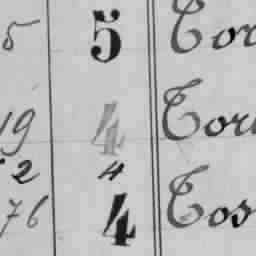 5 5 Tor
19 4 Tor
2 4
76 4 Tos